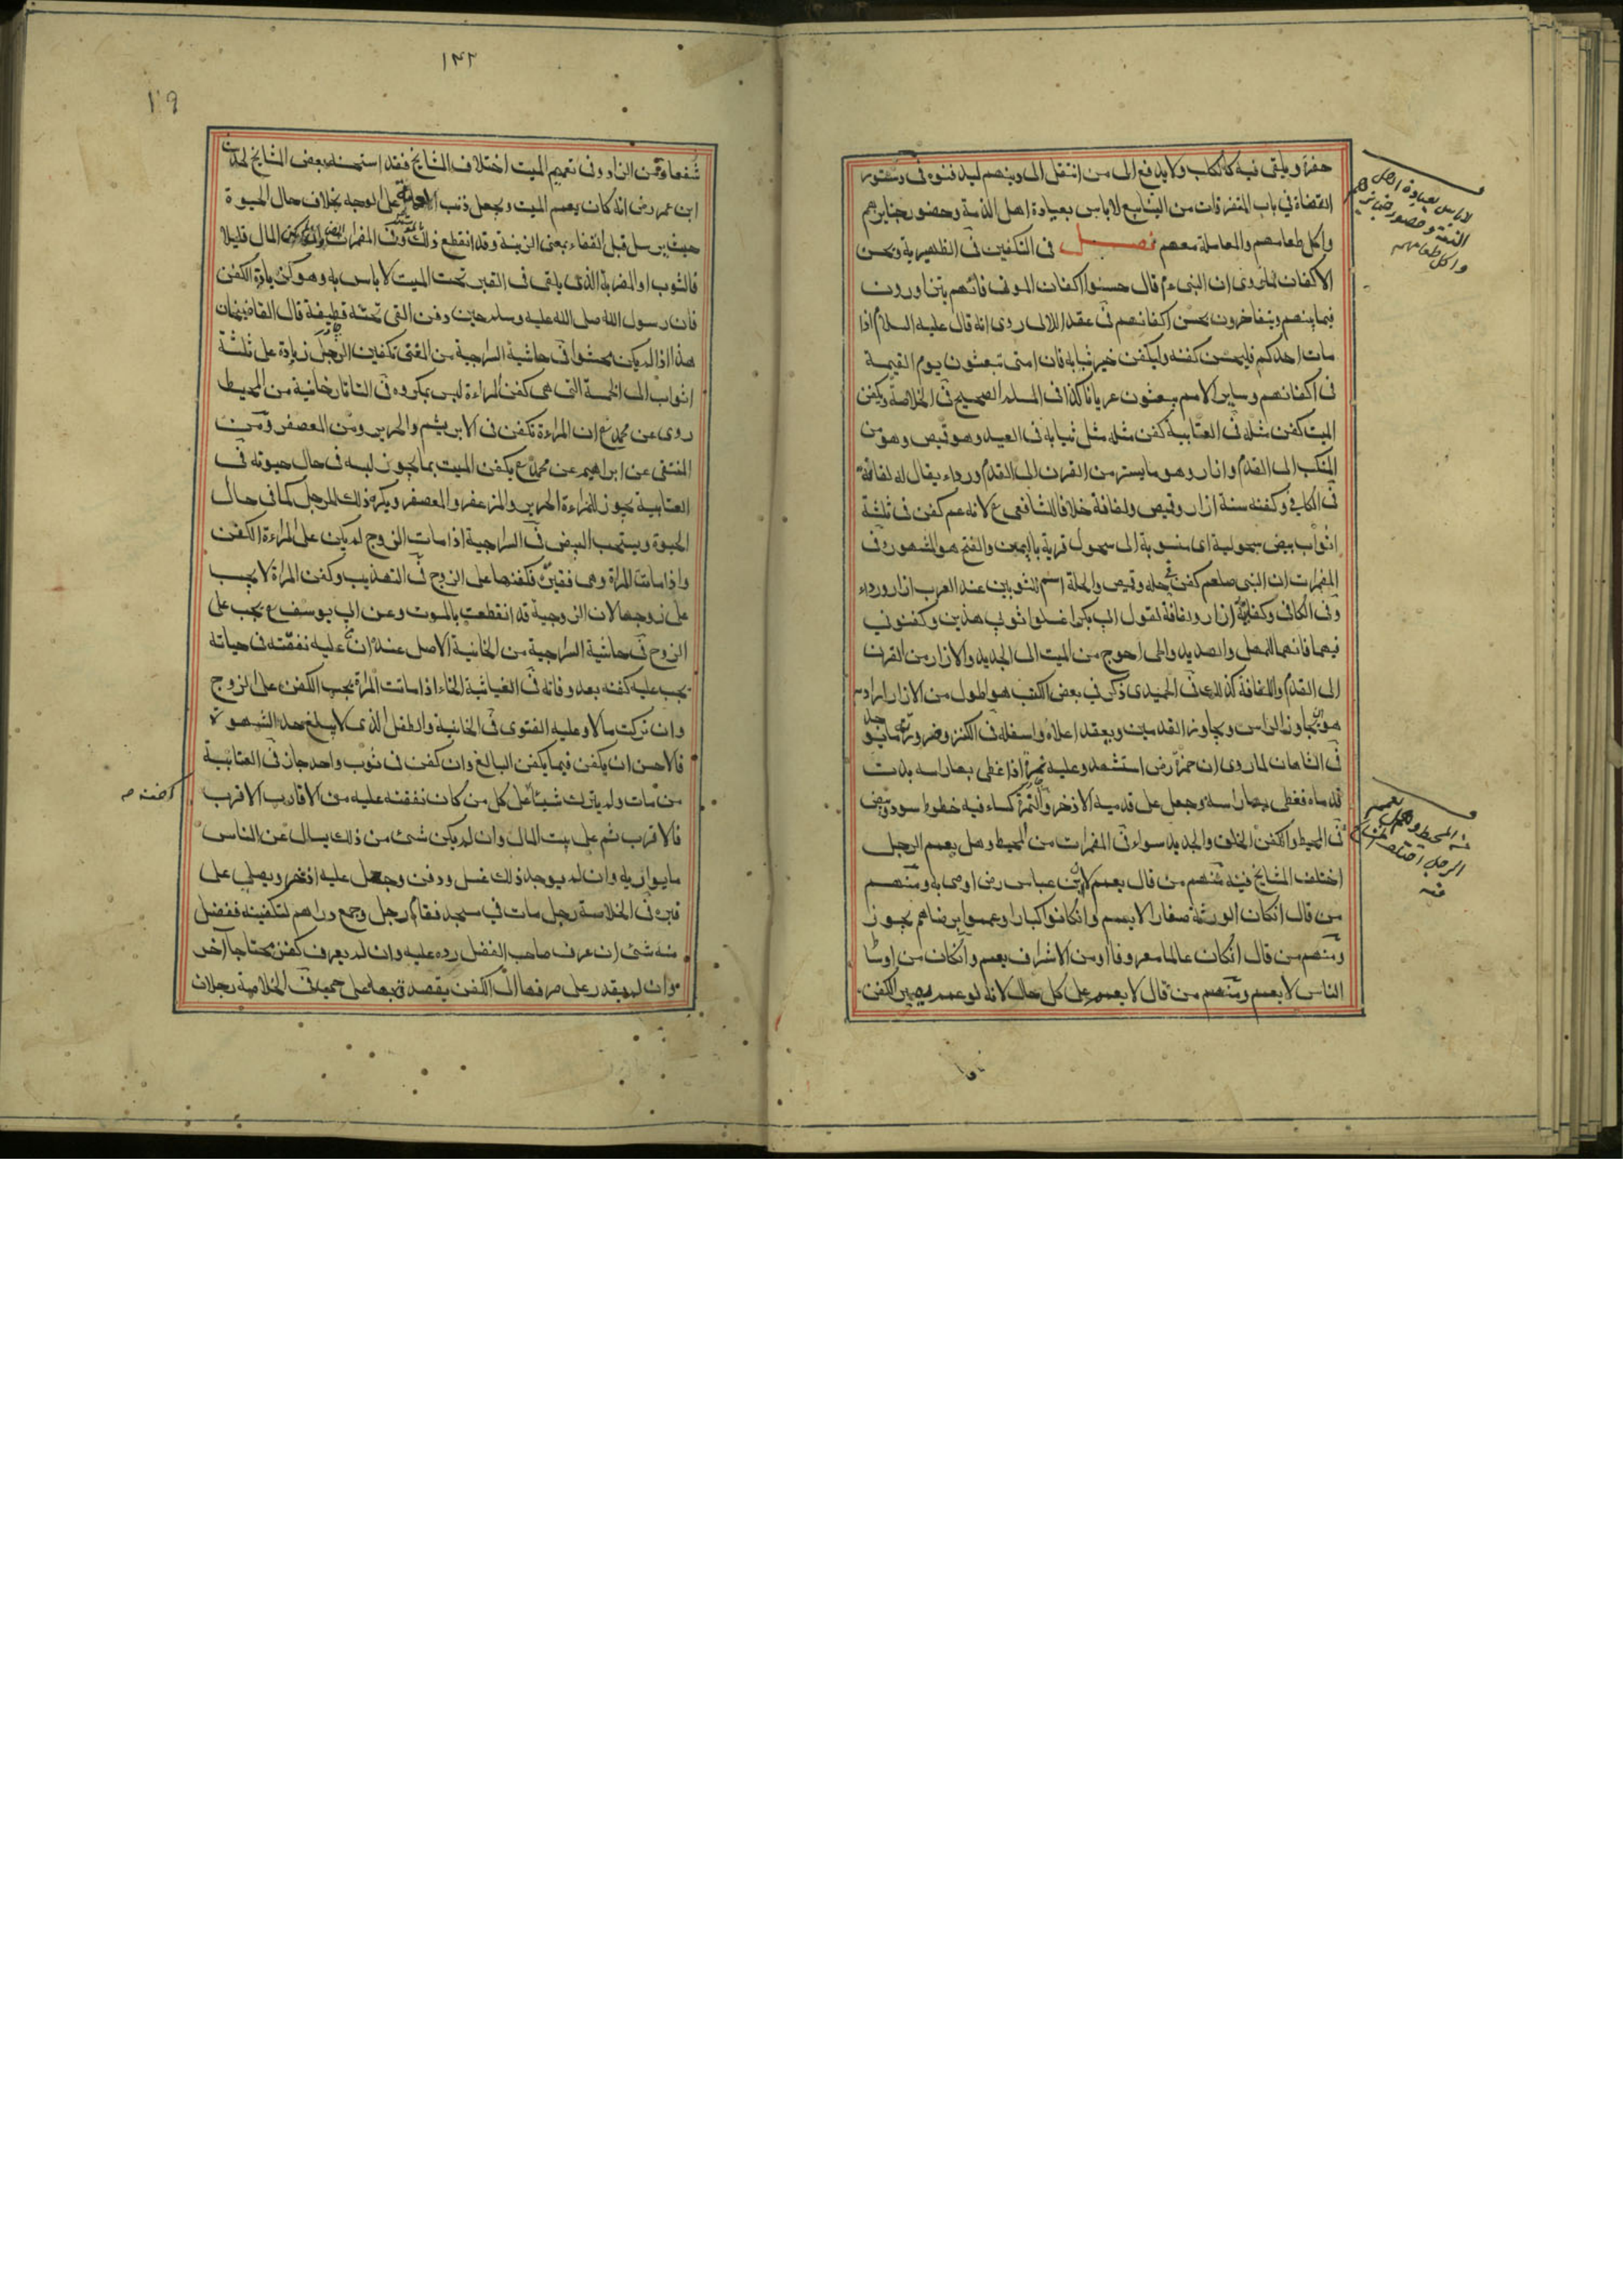 حفرة ويلقى فيه كالكلب ولا يدفع الى من انتقل الى دينهم ليدفنوه في دستور
القضاة في باب المتفرقات من الينابيع لا باس بعيادة اهل الذمة وحضور جنايزهم
واكل طعامهم والمعاملة معهم فصل في التكفين في الظهيرية وتحسن
الاكفان لما روى ان النبي ءم قال حسنوا اكفان الموتى فانهم يتزاورون
فيما بينهم ويتفاخرون بحسن اكفانهم في عقد اللالى روى انه قال عليه السلام اذا
مات احدكم فليحسن كفنه وليكفن خير ثيابه فان امتى تبعثون يوم القيمة
في اكفانهم وساير الامم يبعثون عريانا كذا في المسلم الصحيح في الخلاصة ويكفن
الميت كفن مثله في العتابية كفن مثله مثل ثيابه في العيد وهو قميص وهو من
المنكب الى القدم وازار وهو ما يستر من القرن الى القدم ورداء يقال له لفافة
في الكافي وكفنه سنة ازار وقميص ولفافة خلافا للشافعي ع لانه عم كفن في ثلثة
اثواب بيض سحولية اى منسوبة الى سحول قرية باليمن والفتح هو المشهور في
المضمرات ان النبي صلعم كفن في حلة وقميص والحلة اسم للثوبين عند العرب ازار ورداء
وفي الكافى وكفاية ازار ولفافة لقول ابي بكر اغسلوا ثوبي هذين وكفنوني
فيهما فانهما للمهل والصديد والحى احوج من الميت الى الجديد والازار من القرن
الى القدم واللفافة كذلك في الحميدى ذكر في بعض الكتب هو اطول من الازار
هو يجاوز الراس ويجاوز القدمين ويعقد اعلاه واسفله في الكنز وضرورة ما يوجد
في الشاهان لما روى ان حمزة رض استشهد وعليه نمرة اذا غطى بها راسه بدت
قدماه فغطى بها راسه وجعل على قدميه الاذخر والنمرة كساء فيه خطوط سود وبيض
في المحيط والكفن الخلق والجديد سواء في المضمرات من المحيط وهل يعمم الرجل
اختلف المشايخ فيه فمنهم من قال يعمم لان ابن عباس رض اوصى به ومنهم
من قال ان كان الورثة صغارا لا يعمم وان كانوا كبارا وعمموا برضاهم يجوز
ومنهم من قال ان كان عالما معروفا او من الاشراف يعمم وان كان من اوساط
الناس لا يعمم ومنهم من قال لا يعمم على كل حال لانه لو عمم يصير الكفن
لا باس بعيادة اهل
الذمة وحضور جنايزهم
واكل طعامهم
الرجل اختلف
١٣٢
شفعا وقمن الزاد وفي تعميم الميت اختلاف المشايخ فقد استحسنه بعض المشايخ لحديث
ابن عمر رض انه كان يعمم الميت ويجعل ذنب العمامة على الوجه بخلاف حال الحيوة
حيث يرسل قبل القفاء بمعنى الزينة وقد انقطع ذلك وفي المضمرات المال قليلا
فالثوب او المضربة الذى يلقى في القبر تحت الميت لا باس به وهو كزيادة الكفن
فان رسول الله صلى الله عليه وسلم حين دفن القى تحته قطيفة قال القاضيخان
هذا اذا لم يكن محشوا في حاشية السراجية من الغنى تكفين الرجل زيادة على ثلثة
اثواب الى الخمسة التى هى كفن المراءة ليس بمكروه في التاتارخانية من المحيط
روى عن محمد ع ان المراءة تكفن في الابريشم والحرير ومن المعصفر ومن
المنتقى عن ابراهيم عن محمد ع يكفن الميت بما يجوز لبسه في حال حيوته في
العتابية يجوز للمراءة الحرير والمزعفر والمعصفر ويكره ذلك للرجل كما في حال
الحيوة ويستحب البيض في السراجية اذا مات الزوج لم يكن على المراءة الكفن
واذا ماتت المراة وهى فقيرة فكفنها على الزوج في التهذيب وكفن المراة لا يجب
على زوجها لان الزوجية قد انقطعت بالموت وعن ابي يوسف ع يجب على
الزوج في حاشية السراجية من الخانية الاصل عنده ان من عليه نفقته في حياته
يجب عليه كفنه بعد وفاته في الغياثية اذا ماتت المراة يجب الكفن على الزوج
وان تركت مالا وعليه الفتوى في الخانية والطفل الذى لا يبلغ حد الشهوة
فالاحسن ان يكفن فيما يكفن البالغ وان كفن في ثوب واحد جاز في العتابية
من مات ولم يترك شيئا على كل من كان نفقته عليه من الاقارب الاقرب
فالاقرب ثم على بيت المال وان لم يكن شئ من ذلك يسال عن الناس
ما يواريه وان لم يوجد ذلك غسل ودفن وجعل عليه اذخر ويصلى على
قبره في الخلاصة رجل مات في مسجد فقام رجل وجمع دراهم لتكفينه ففضل
منه شئ ان عرف صاحب الفضل رده عليه وان لم يعرف كفن محتاجا آخر
وان لم يقدر على صرفها الى الكفن يتصدق بها على في الخلاصة رجلان
كفنه صه